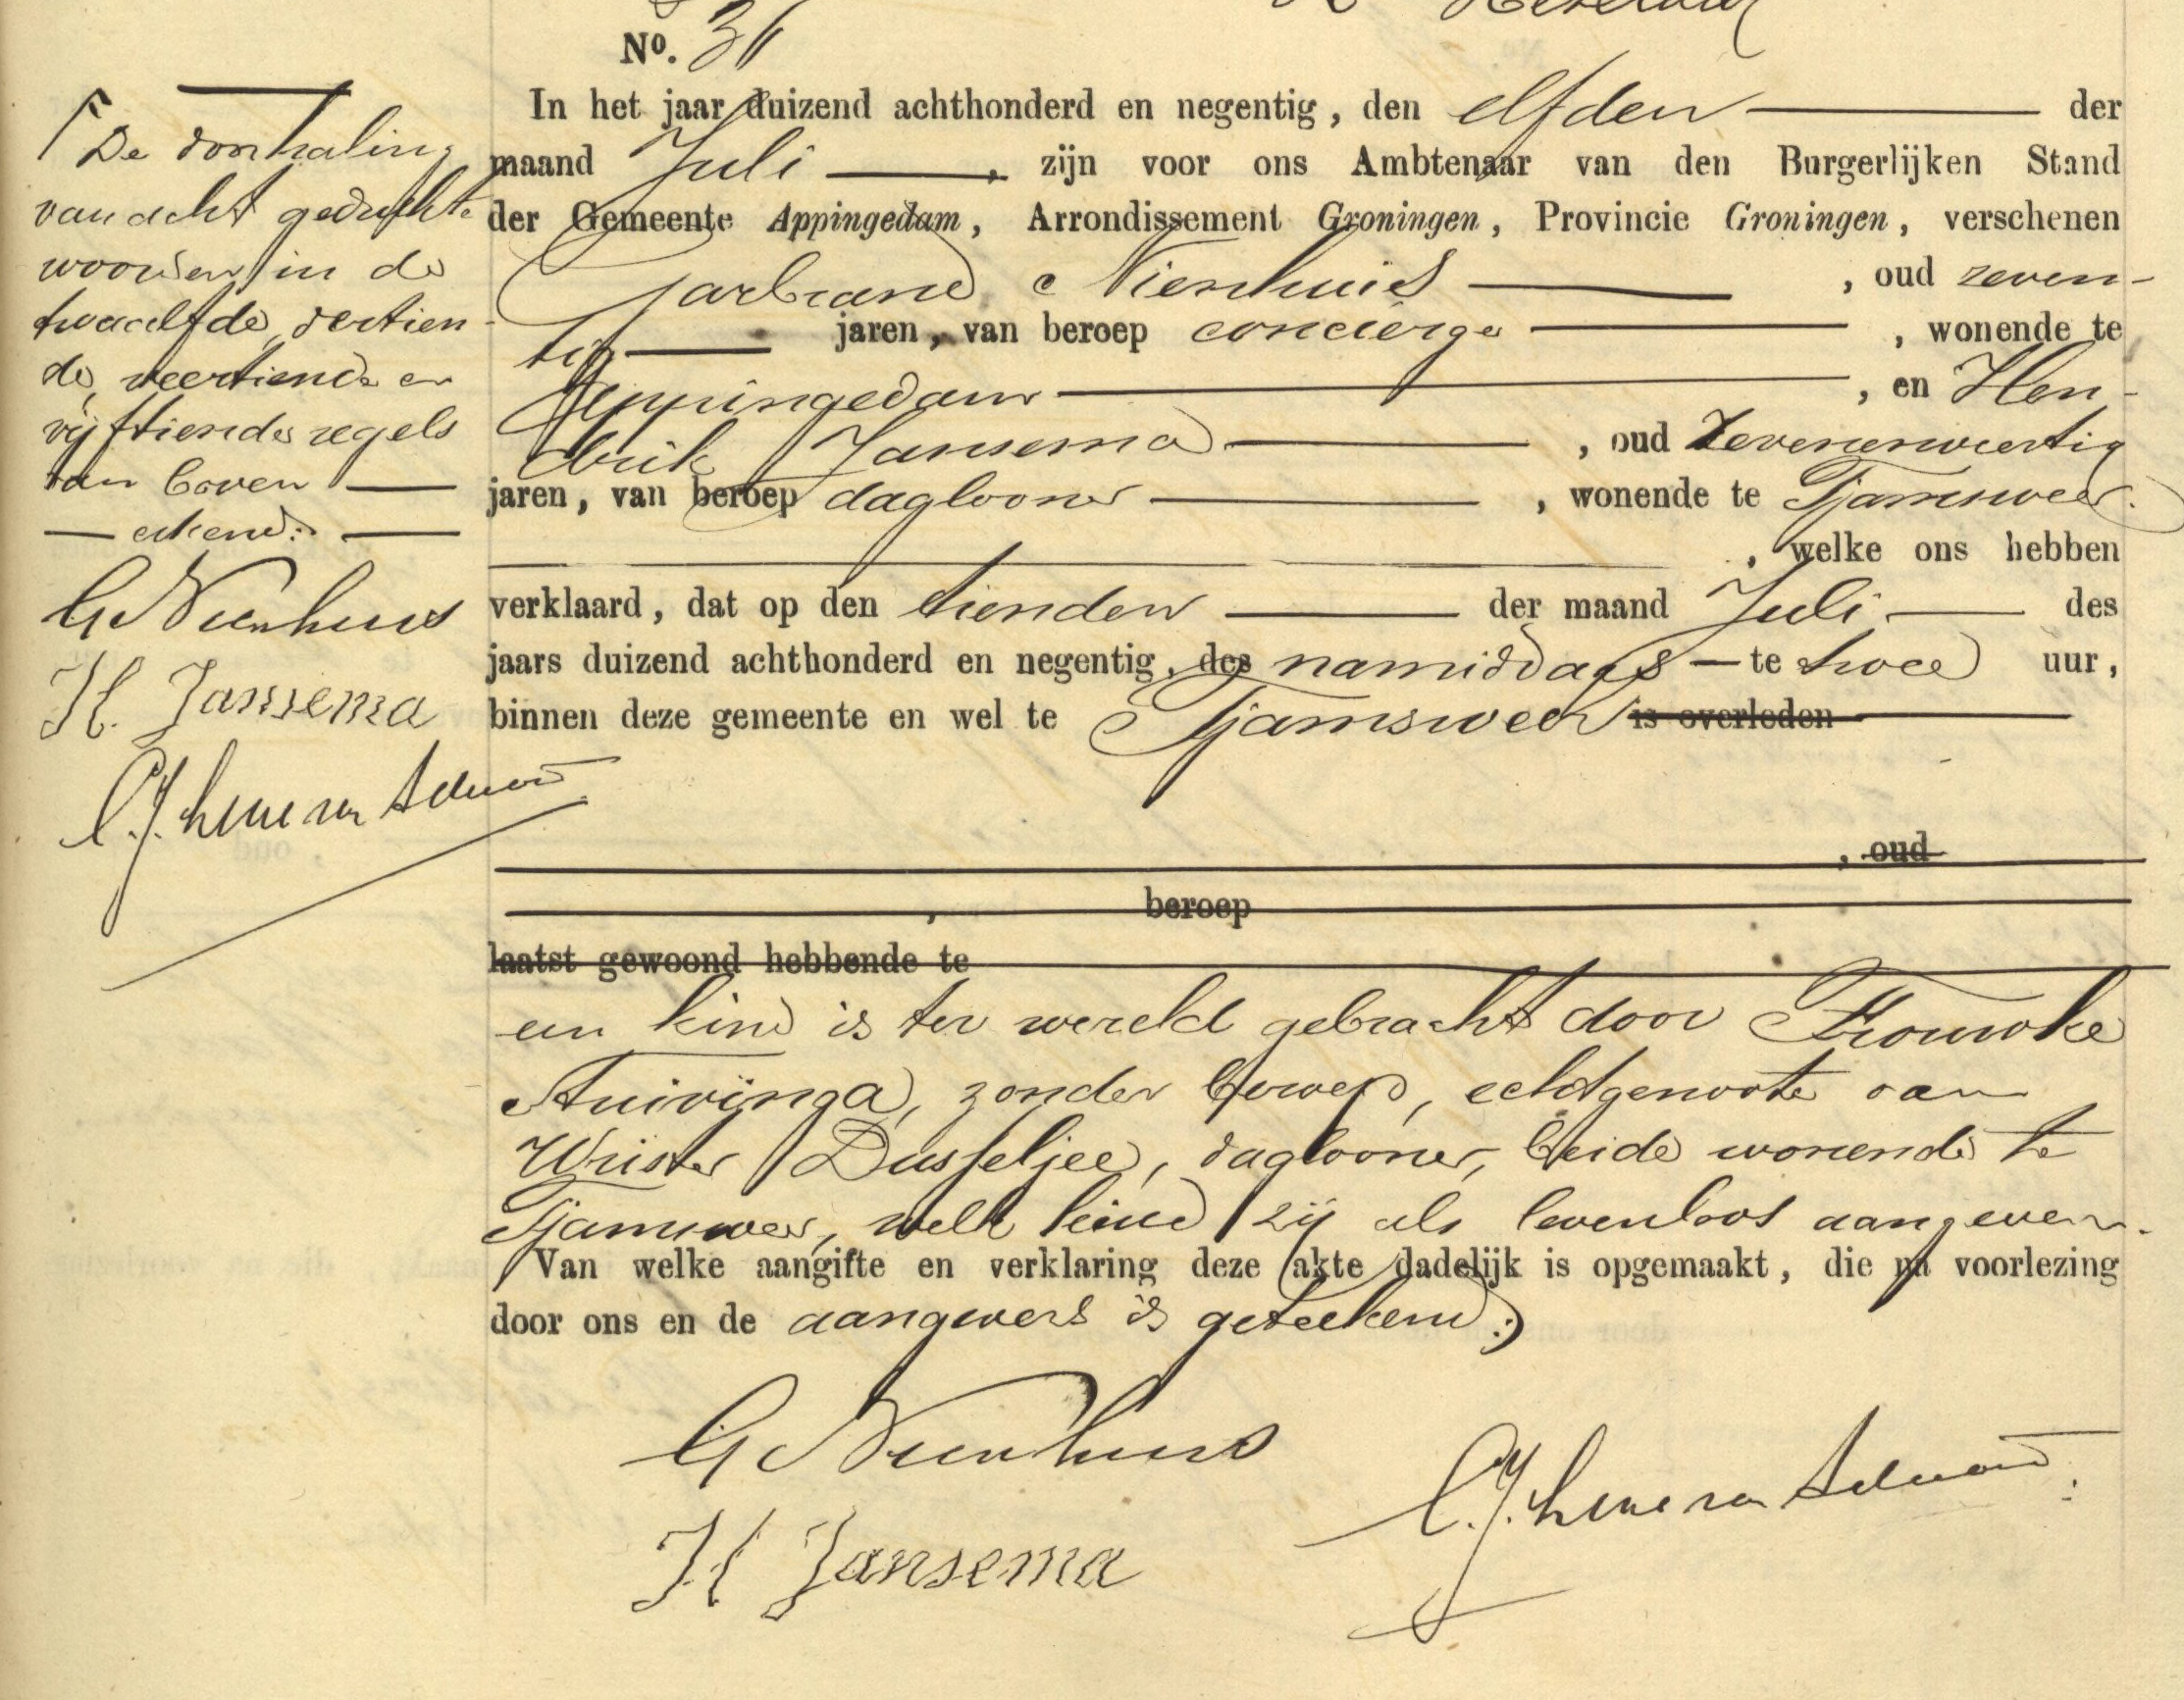 No. 36
In het jaar duizend achthonderd en negentig, den elfden der
maand Juli, zijn voor ons Ambtenaar van den Burgerlijken Stand
der Gemeente Appingedam, Arrondissement Groningen, Provincie Groningen, verschenen
Garbrand Nienhuis, oud zeven-
tig jaren, van beroep concierge, wonende te
Appingedam, en Hen-
drik Jansema, oud zevenenveertig
jaren, van beroep daglooner, wonende te Tjamsweer
, welke ons hebben
verklaard, dat op den tienden der maand Juli des
jaars duizend achthonderd en negentig, des namiddags te twee uur,
binnen deze gemeente en wel te Tjamsweer is overleden
, oud
, beroep
laatst gewoond hebbende te
een kind is ter wereld gebracht door Trouwke
Stuivinga, zonder beroep, echtgenoote van
Wuister Dusseljee, daglooner, beide wonende te
Tjamsweer, welk kind zij als levenloos aangeven.
Van welke aangifte en verklaring deze akte dadelijk is opgemaakt, die na voorlezing
door ons en de aangevers is geteekend.
G Nienhuis
H Jansema
De doorhaling
van acht gedrukte
woorden in de
twaalfde, dertien-
de, veertiende en
vijftiende regels
van boven
erkend:
G Nienhuis
H. Jansema